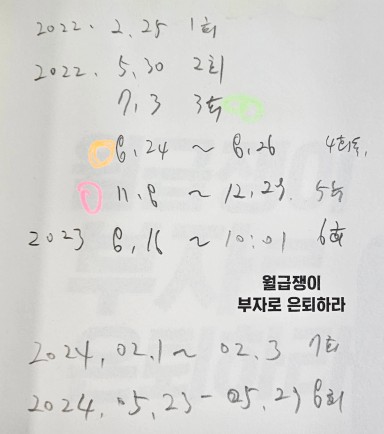 2022. 2.25 1회
2022. 5,30 2회
7,3 3독
8,24 ~ 8,26 4회독,
11.8 ~ 12,23. 5독
2023 8,16 ~ 10:01 6회
월급쟁이
부자로 은퇴하라
2024, 02.1 ~ 02.3 7회
2024, 05,23 - 05,27 8회